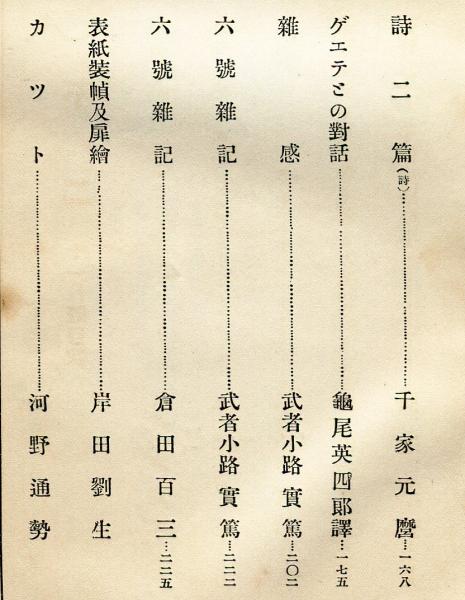 詩二篇(詩)……千家元麿…一六八
ゲエテとの對話……龜尾英四郎譯…一七五
雜感……武者小路實篤…二〇二
六號雜記……武者小路實篤…二二二
六號雜記……倉田百三…二二五
表紙裝幀及扉繪……岸田劉生
カツト……河野通勢